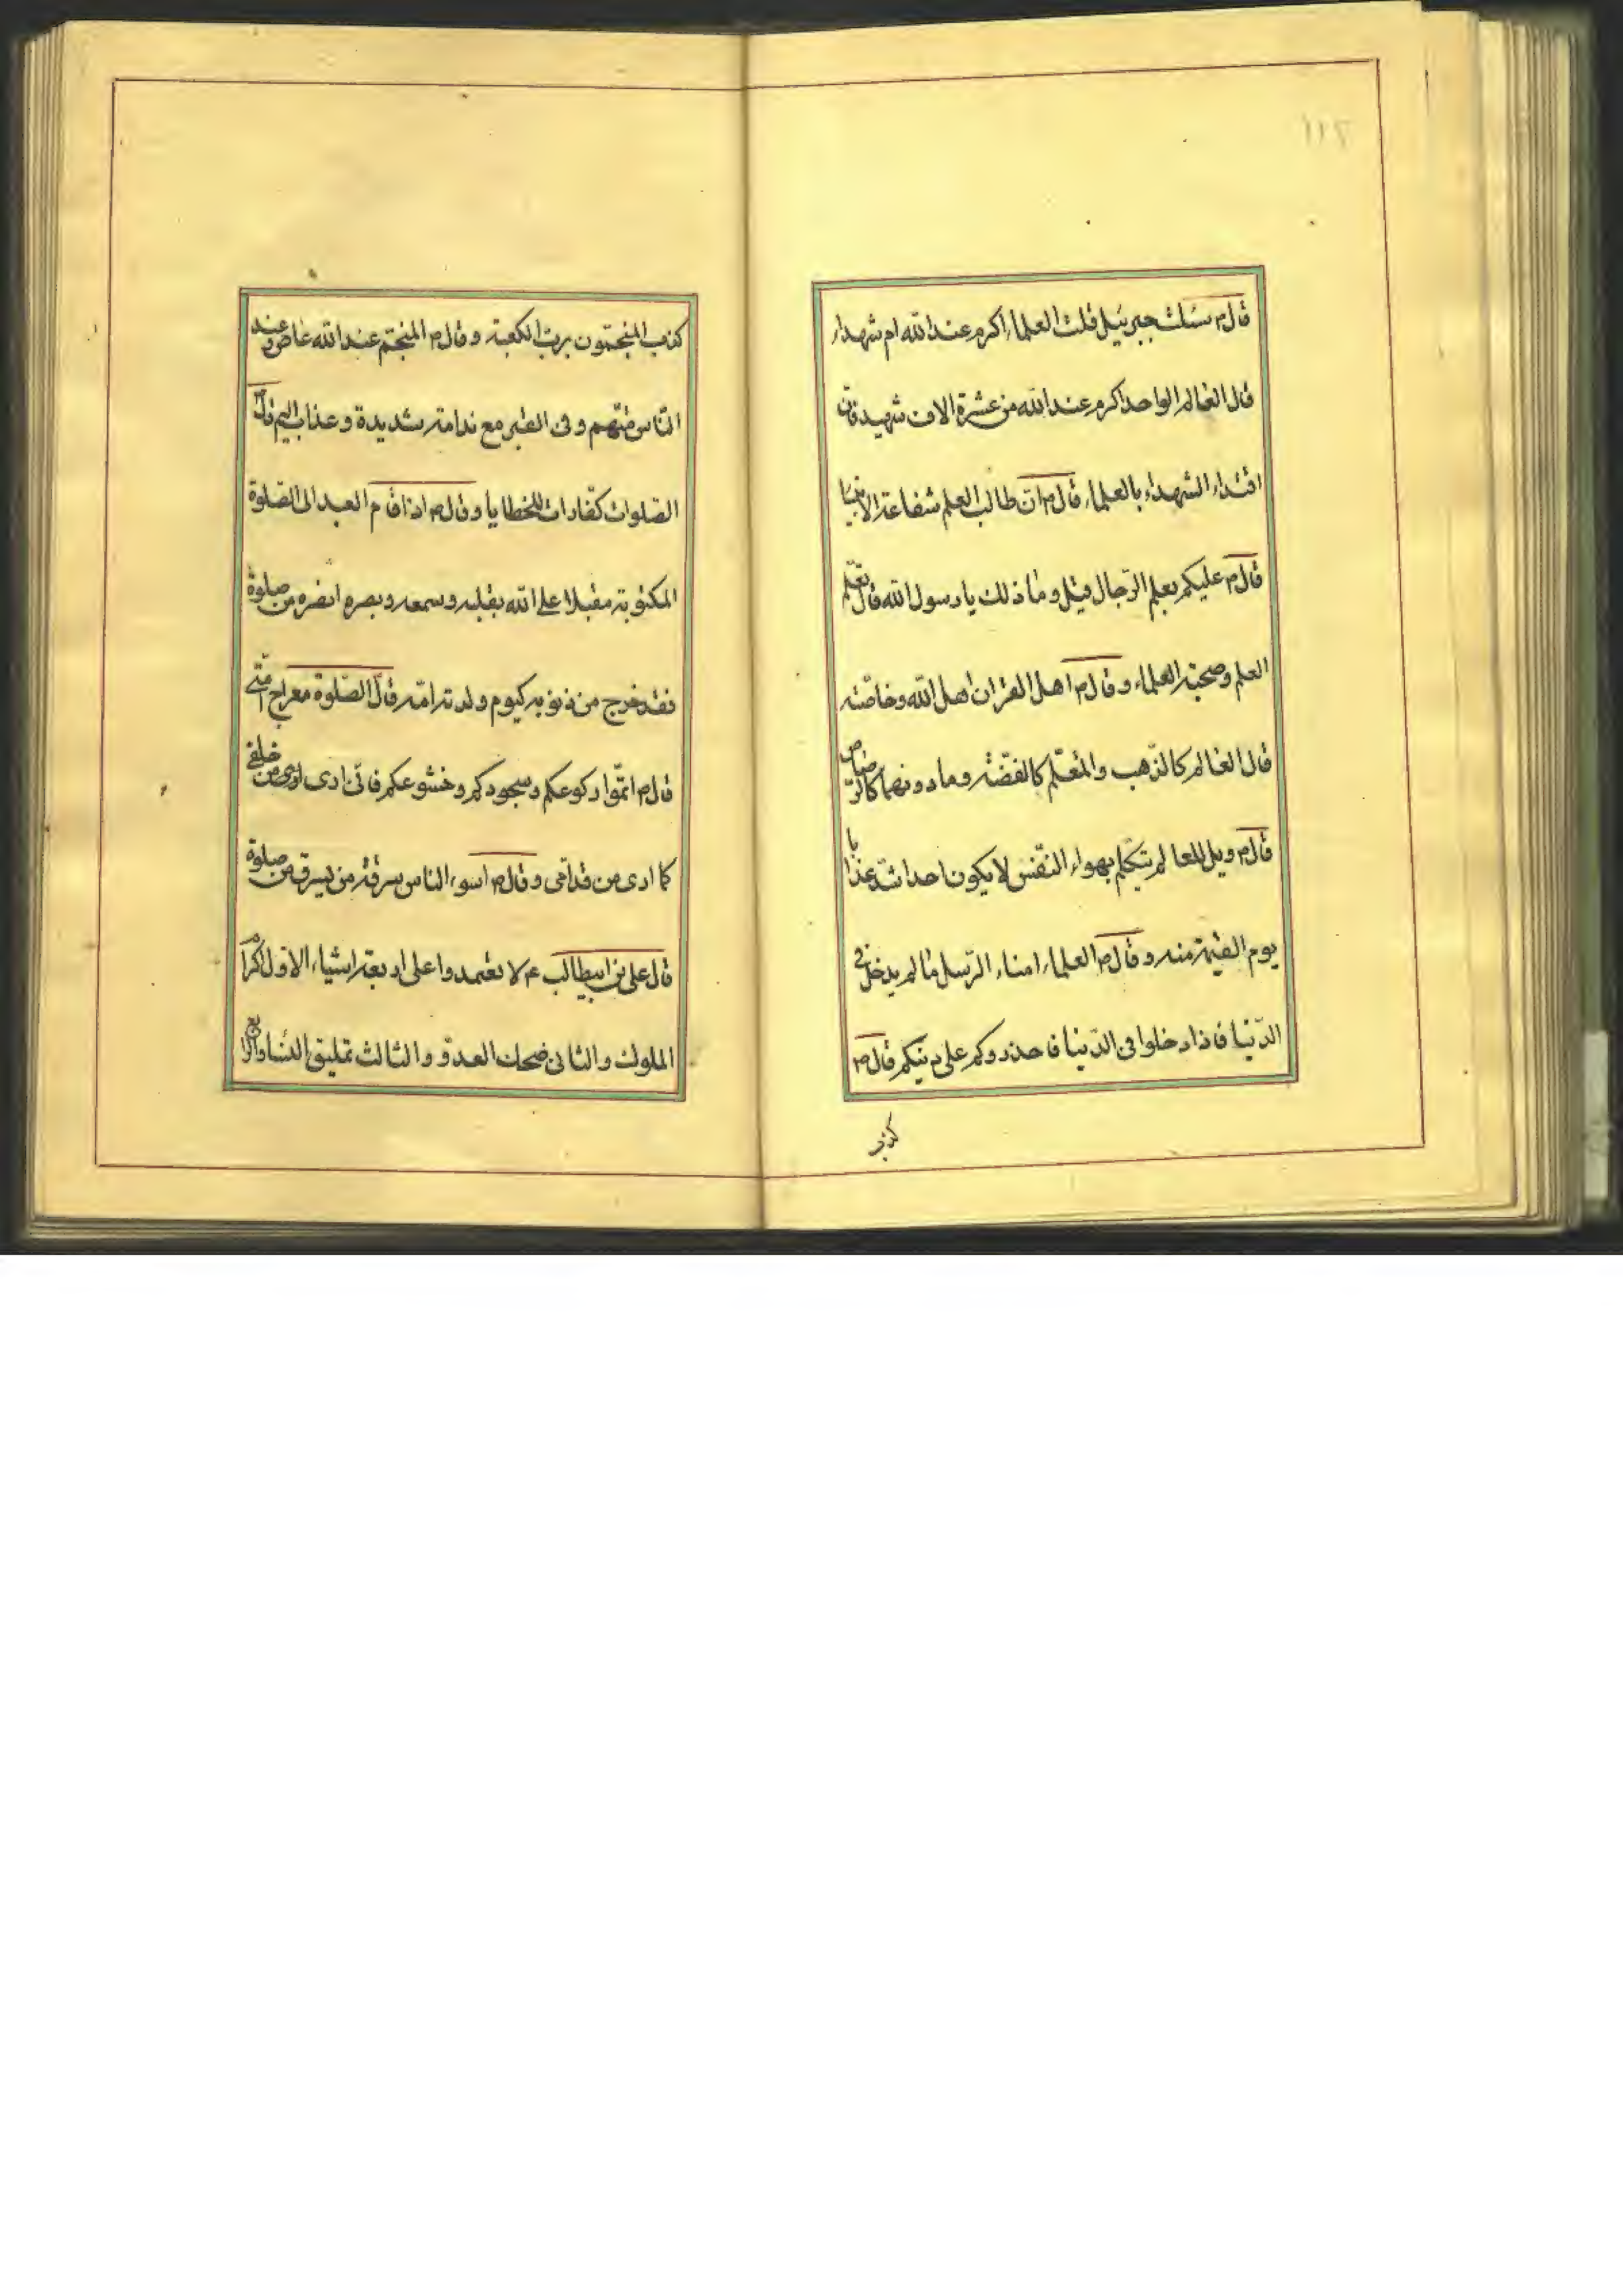 قال ص سئلت جبرئیل قلت العلماء اکرم عند الله ام شهداء
قال العالم الواحد اکرم عند الله من عشرة الاف شهید فان
اقتداء الشهداء بالعلماء قال ص ان طالب العلم شفاعة الانبیا
قال ص علیکم بعلم الرّجال قیل و ما ذلك یا رسول الله قال تعلّم
العلم و صحبة العلماء و قال ص اهل القران اهل الله و خاصّته
قال العالم کالذّهب والمتعلّم کالفضّة وما دونهما کالرّصاص
قال ص ویل للعالم یتکلّم بهواء النّفس لا یکون احدا شدّ عذابا
یوم القیمة منه و قال ص العلماء امناء الرّسل ما لم یدخل فی
الدّنیا فاذا دخلوا فی الدّنیا فاحذروکم علی دینکم قال ص
کذب
کذب المنجّمون بربّ الکعبة و قال ص المنجّم عند الله عاص و عند
النّاس متّهم و فی القبر مع ندامة شدیدة و عذاب الیم قال ص
الصّلوات کفّارات للخطایا و قال ص اذا قام العبد الی الصّلوة
المکتوبة مقبلا علی الله بقلبه و سمعه و بصره انصره من صلوة
فقد خرج من ذنوبه کیوم ولدته امّه قال الصّلوة معراج امّتی
قال ص اتمّوا رکوعکم و سجودکم و خشوعکم فانّی اری من خلفی
کما اری من قدّامی و قال ص اسوء الناس سرقة من یسرق من صلوة
قال علی بن ابیطالب ع لا تعتمدوا علی اربعة اشیاء الاوّل اکرام
الملوك والثانی ضحك العدوّ والثالث تملیق النّساء والرّابع